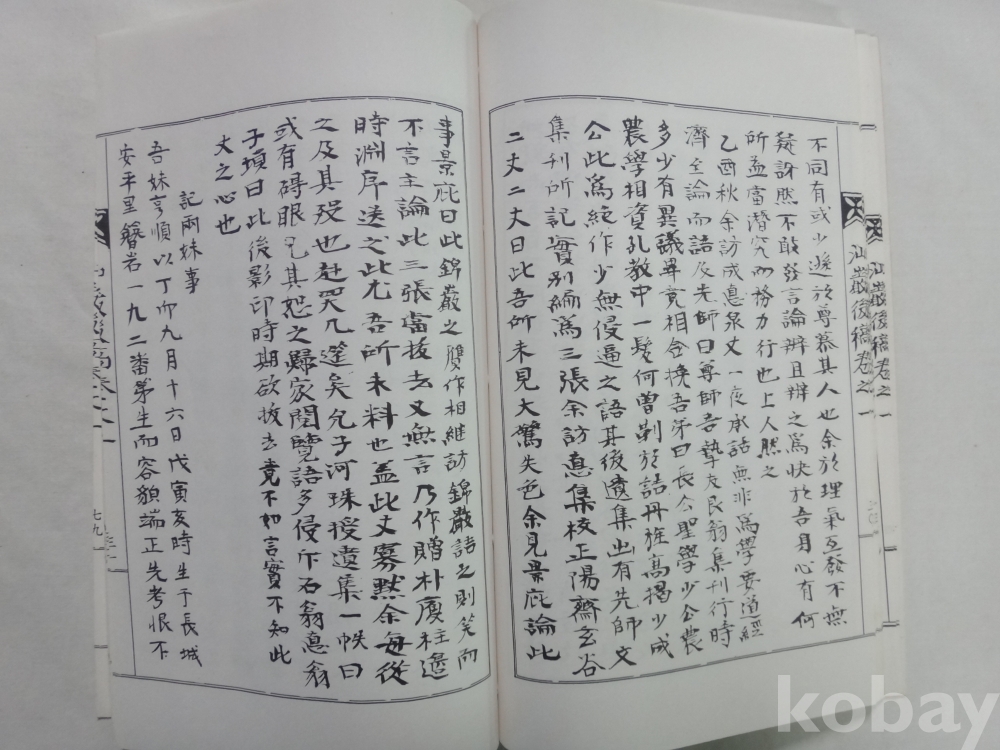 不同有或少遜於尊慕其人也余於理氣互發不無
疑訝然不敢發言論辨且辨之爲快於吾身心有何
所益當潛究而務力行也上人然之
乙酉秋余訪成息泉丈一夜承話無非爲學要道經
濟至論而語及先師曰尊師吾摯友艮翁集刊行時
多少有異議畢竟相合挽吾弟曰長公聖學少公農
農學相資孔敎中一髮何曾剃於詰丹旌高揭少成
公此爲絶作少無侵逼之語其後遺集出有先師文
集刊所記實別編爲三張余訪息集校正陽齋玄谷
二丈二丈曰此吾所未見大驚失色余見景庇論此
事景庇曰此錦巖之贋作相継訪錦巖詰之則笑而
不言主論此三張當拔去又無言乃作贈朴厦柱邊
時淵序送之此尤吾所未料也盖此丈寡默余每從
之及其歿也赴哭几筵矣允子河珠授遺集一帙曰
或有碍眼乞其恕之歸家閱覽語多侵斥石翁息翁
子頃曰此後影印時期欲拔去竟不如言實不知此
丈之心也
記兩妹事
吾妹亨順以丁卯九月十六日戊寅亥時生于長城
安平里簪岩一九二番第生而容貌端正先考恨不
汕巖後稿卷之一
汕巖後稿卷之一
七九
kobay